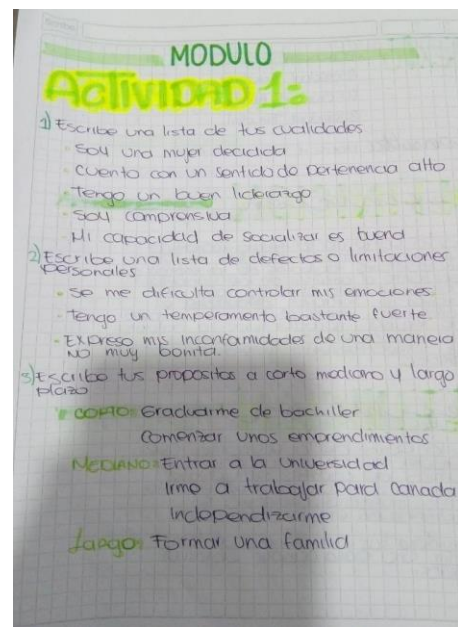 MODULO
ACTIVIDAD 1:
1) Escribe una lista de tus cualidades
- Soy una mujer decidida
- cuento con un sentido de pertenencia alto
- Tengo un buen liderazgo
- Soy comprensiva
- Mi capacidad de socializar es buena
2) Escribe una lista de defectos o limitaciones
personales
- Se me dificulta controlar mis emociones
- Tengo un temperamento bastante fuerte
- Expreso mis inconformidades de una manera
NO muy bonita.
3) Escribe tus propositos a corto mediano y largo
plazo
CORTO: Graduarme de bachiller
Comenzar unos emprendimientos
MEDIANO: Entrar a la Universidad
Irme a trabajar para Canada
Independizarme
Largo: Formar una familia